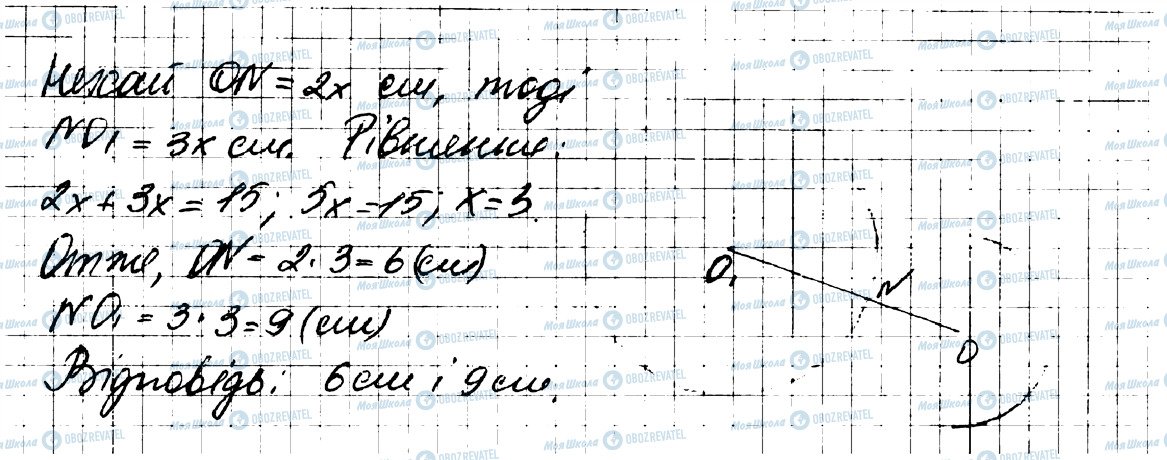 Нехай ON = 2x см, тоді
NO₁ = 3x см. Рівняння:
2x + 3x = 15; 5x = 15; x = 3.
Отже, ON = 2 · 3 = 6 (см)
NO₁ = 3 · 3 = 9 (см)
Відповідь: 6 см і 9 см.
O₁
N
O
МояШкола OBOZREVATEL